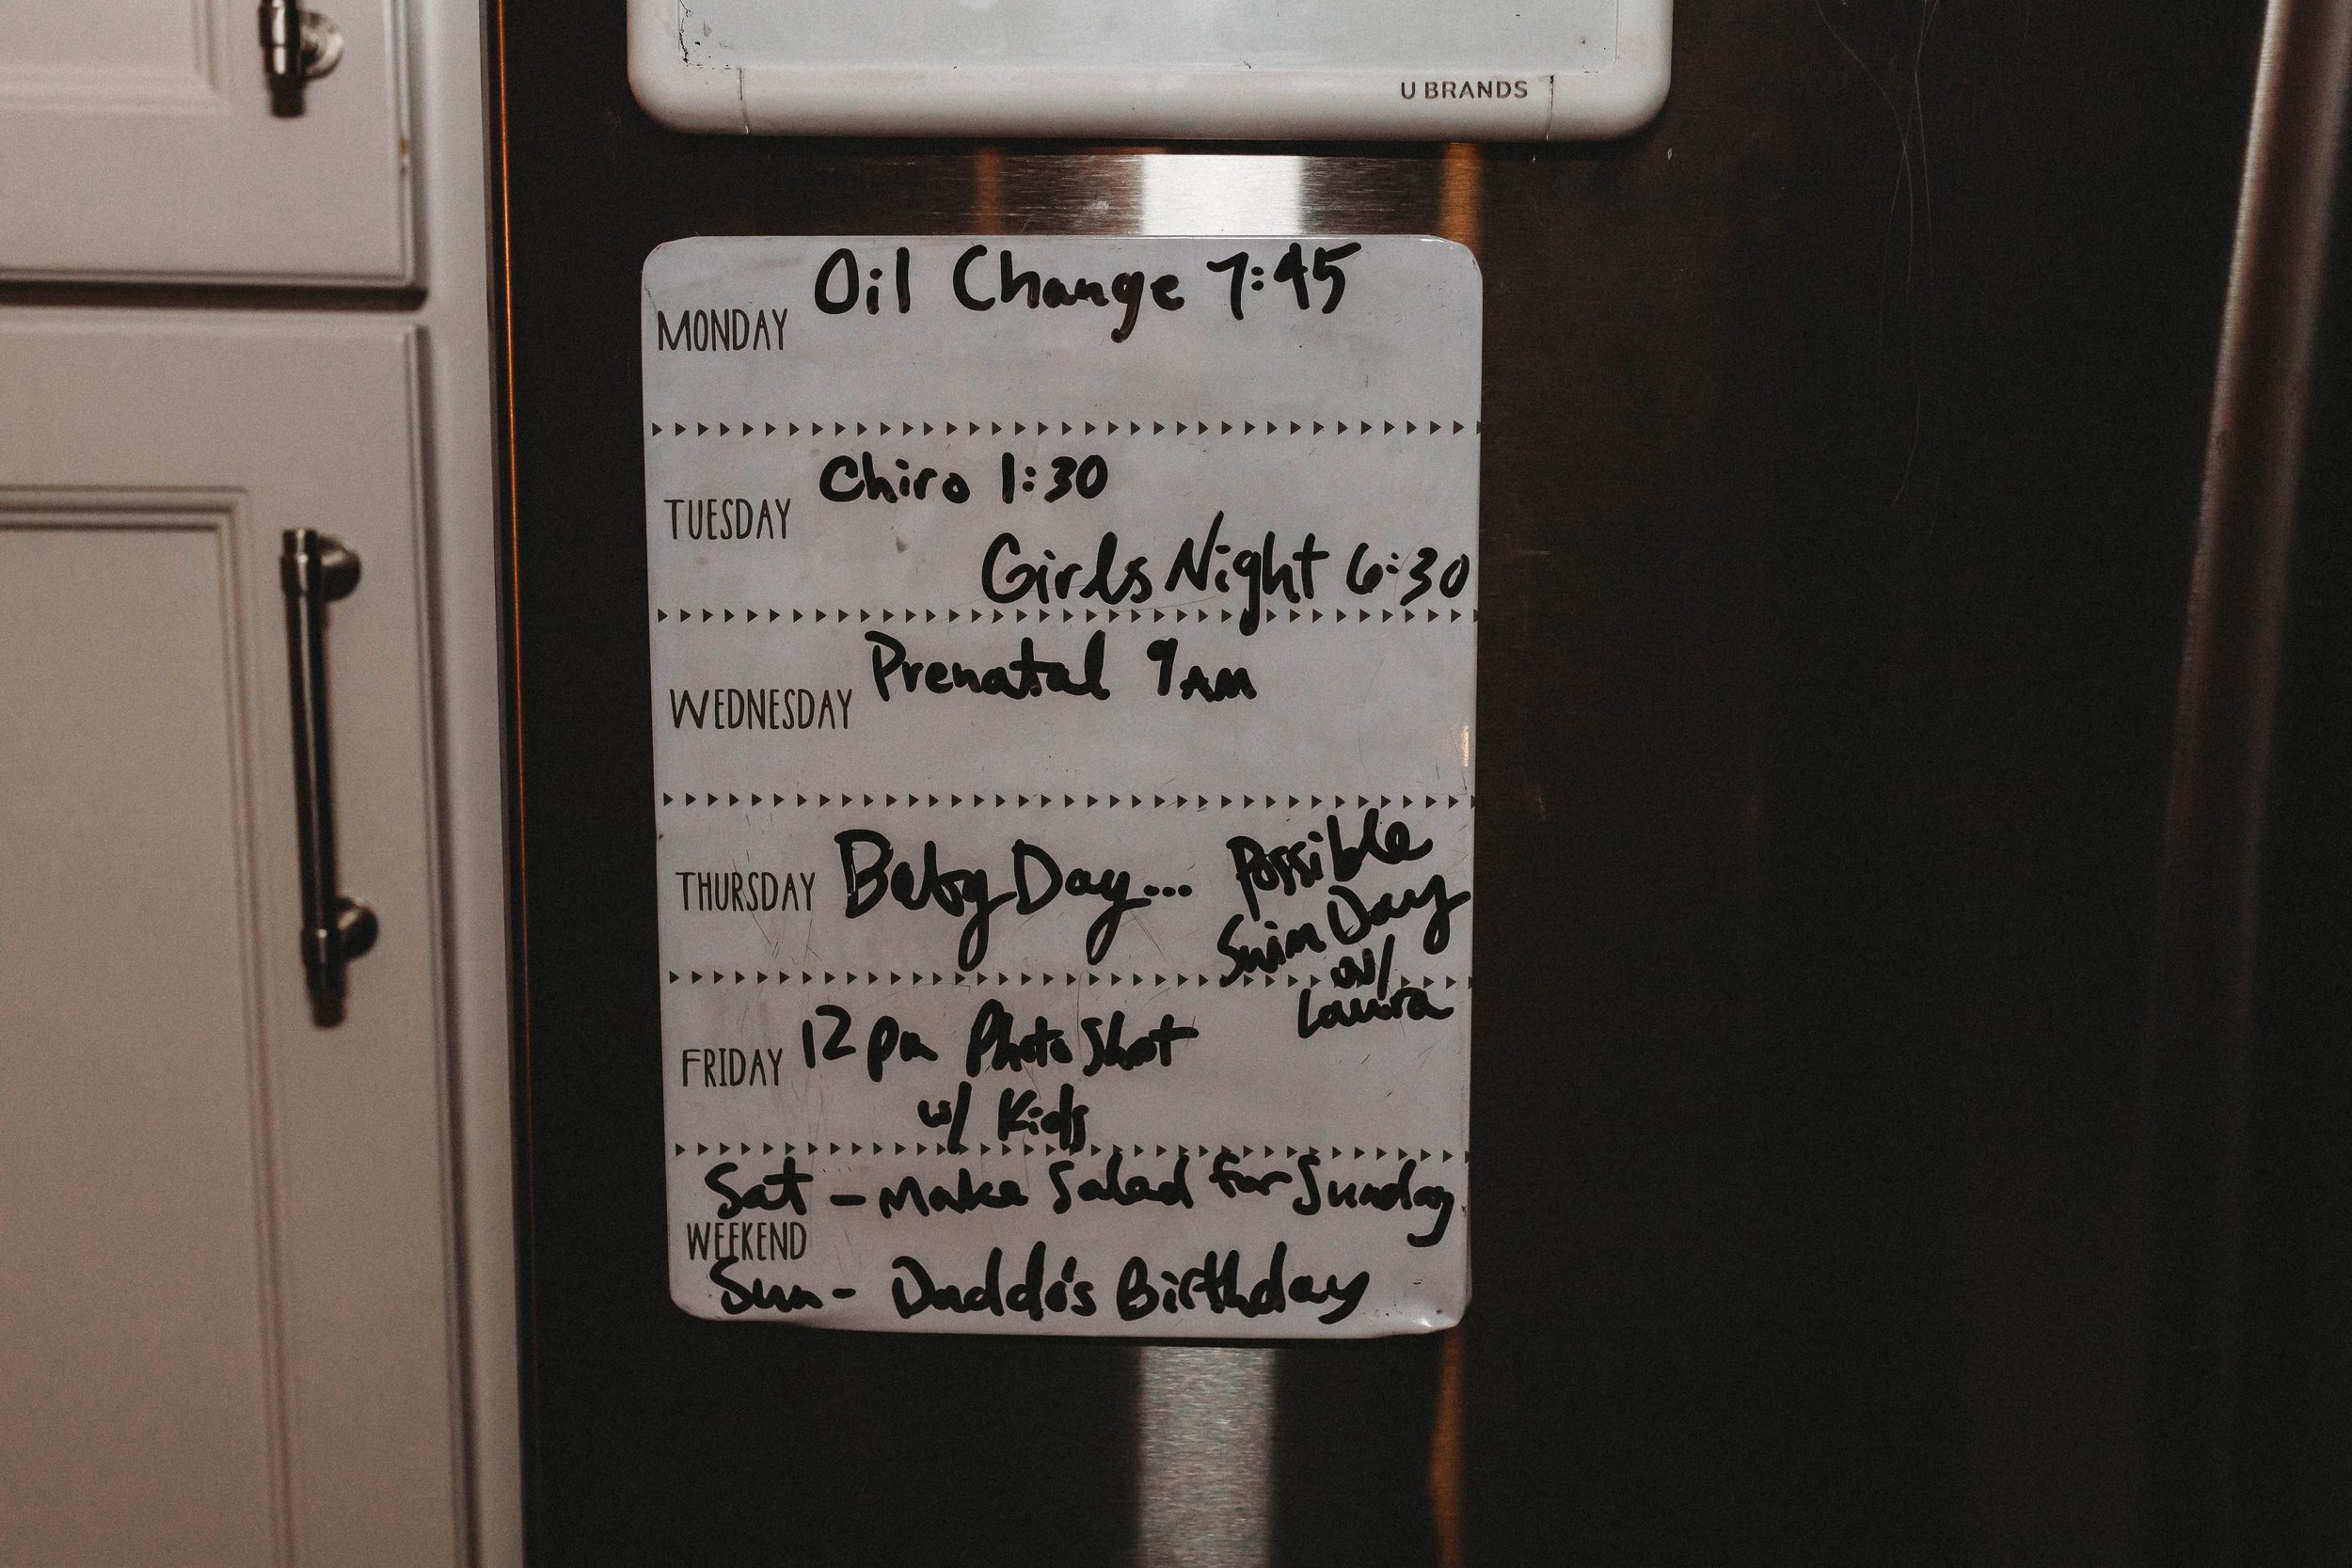 U BRANDS
MONDAY Oil Change 7:45
TUESDAY Chiro 1:30
Girls Night 6:30
WEDNESDAY Prenatal 9AM
THURSDAY Baby Day... Possible
Swim Day
w/
Laura
FRIDAY 12pm Photo Shoot
w/ Kids
Sat - Make Salad for Sunday
WEEKEND
Sun - Daddo's Birthday